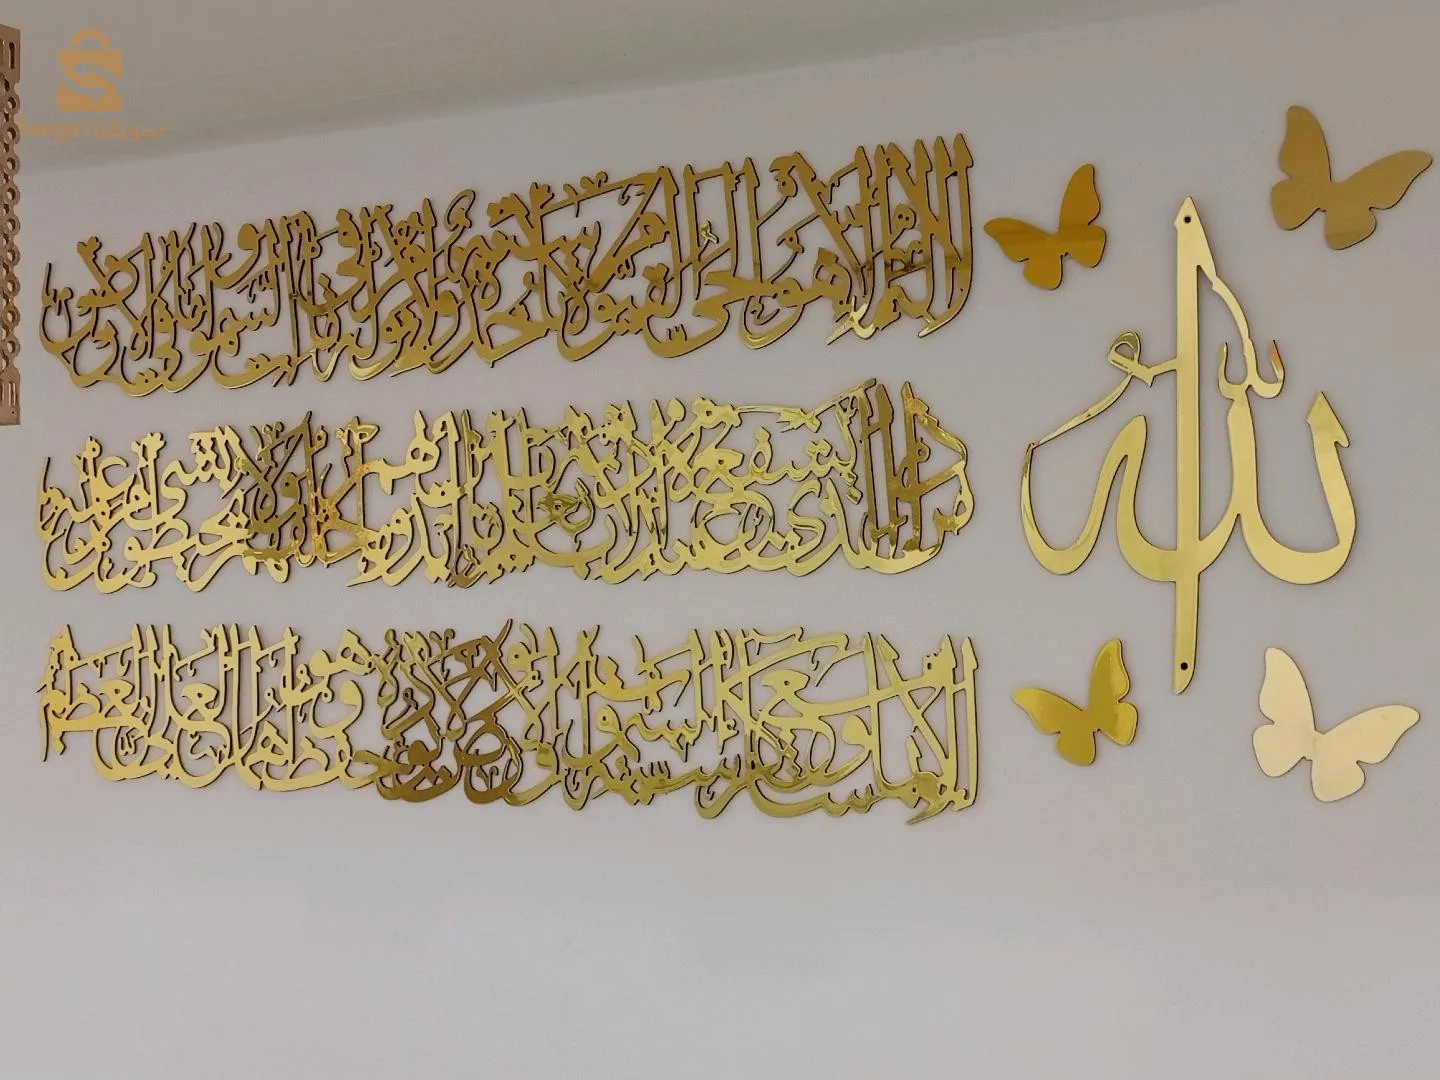 الله
الله لا اله الا هو الحي القيوم لا تأخذه سنة ولا نوم له ما في السموات وما في الارض
من ذا الذي يشفع عنده الا باذنه يعلم ما بين ايديهم وما خلفهم ولا يحيطون بشيء من علمه
الا بما شاء وسع كرسيه السموات والارض ولا يؤده حفظهما وهو العلي العظيم